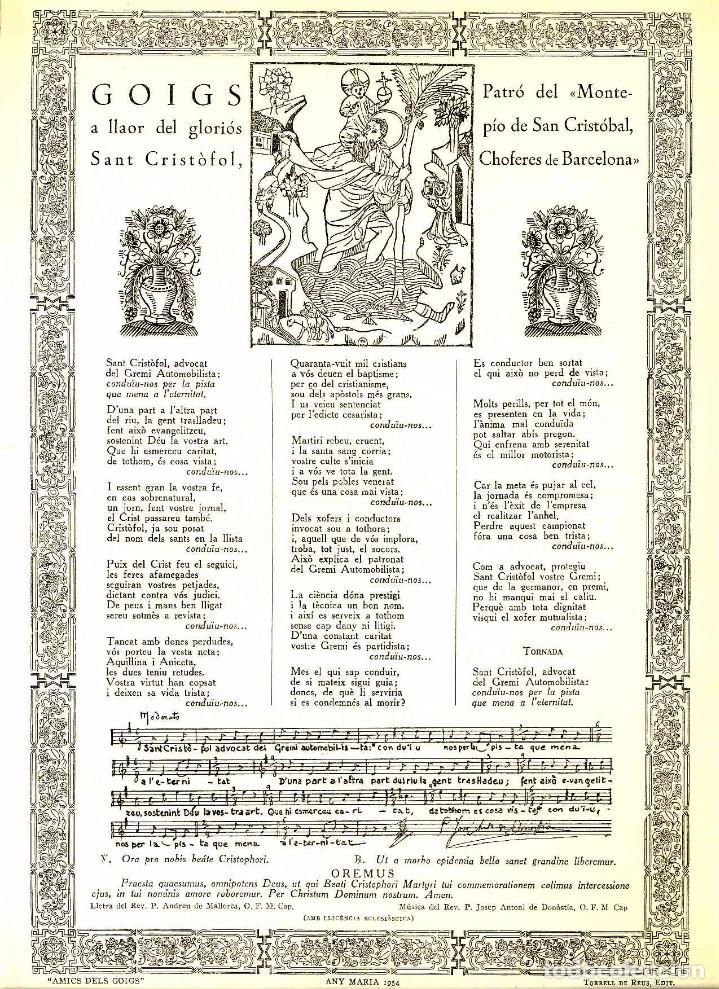 GOIGS
a llaor del gloriós
Sant Cristòfol,
Patró del «Monte-
pío de San Cristóbal,
Choferes de Barcelona»
Sant Cristòfol, advocat
del Gremi Automobilista:
conduïu-nos per la pista
que mena a l'eternitat.
D'una part a l'altra part
del riu, la gent traslladeu;
fent això evangelitzeu,
sostenint Déu la vostra art.
Que hi esmerceu caritat,
de tothom, és cosa vista;
conduïu-nos...
I essent gran la vostra fe,
en cas sobrenatural,
un jorn, fent vostre jornal,
el Crist passareu també.
Cristòfol, ja sou posat
del nom dels sants en la llista
conduïu-nos...
Puix del Crist feu el seguici,
les feres afamegades
seguiran vostres petjades,
dictant contra vós judici.
De peus i mans ben lligat
sereu solmès a revista;
conduïu-nos...
Tancat amb dones perdudes,
vós porteu la vesta neta;
Aquilina i Aniceta,
les dues teniu retudes.
Vostra virtut han copsat
i deixen sa vida trista;
conduïu-nos...
Quaranta-vuit mil cristians
a vós deuen el baptisme;
per ço del cristianisme,
sou dels apòstols més grans.
I us veieu sentenciat
per l'edicte cesarista;
conduïu-nos...
Martiri rebeu, cruent,
i la santa sang corria;
vostre culte s'inicia
i a vós ve tota la gent.
Sou pels pobles venerat
que és una cosa mai vista;
conduïu-nos...
Dels xofers i conductors
invocat sou a tothora;
i, aquell que de vós implora,
troba, tot just, el socors.
Això explica el patronat
del Gremi Automobilista;
conduïu-nos...
La ciència dóna prestigi
i la tècnica un bon nom.
i així es serveix a tothom
sense cap dany ni litigi.
D'una constant caritat
vostre Gremi és partidista;
conduïu-nos...
Mes el qui sap conduir,
de si mateix sigui guia;
doncs, de què li serviria
si es condemnés al morir?
Es conductor ben sortat
el qui això no perd de vista;
conduïu-nos...
Molts perills, per tot el món,
es presenten en la vida;
l'ànima mal conduïda
pot saltar abís pregon.
Qui enfrena amb serenitat
és el millor motorista;
conduïu-nos...
Car la meta és pujar al cel,
la jornada és compromesa;
i n'és l'èxit de l'empresa
el realitzar l'anhel.
Perdre aquest campionat
fóra una cosa ben trista;
conduïu-nos...
Com a advocat, protegiu
Sant Cristòfol vostre Gremi;
que de la germanor, en premi,
no hi manqui mai el caliu.
Perquè amb tota dignitat
visqui el xofer mutualista;
conduïu-nos...
TORNADA
Sant Cristòfol, advocat
del Gremi Automobilista:
conduïu-nos per la pista
que mena a l'eternitat.
Moderato
Sant Cristò-fol advocat del Gremi automobilis-ta: con du-ï u nos per la pis-ta que mena
a l'e-ter ni-tat D'una part a l'altra part del riu la gent traslladeu; fent això e-van gelit-
zeu, sostenint Déu la vos-tra art. Que hi esmerceu ca-ri-tat, de tothom es cosa vis-ta: con du-ï-u,
nos per la pis-ta que mena a l'e-ter-ni-tat
V. Ora pro nobis beáte Cristophori.
R. Ut a morbo epidemia bello sanet grandine liberemur.
OREMUS
Praesta quaesumus, omnipotens Deus, ut qui Beati Cristophori Martyri tui commemorationem colimus intercessione
ejus, in tui nominis amore roboremur. Per Christum Dominum nostrum. Amen.
Lletra del Rev. P. Andreu de Mallorca, O. F. M. Cap.
Música del Rev. P. Josep Antoni de Donòstia, O. F. M Cap
(AMB LLICÈNCIA ECLESIÀSTICA)
"AMICS DELS GOIGS"
ANY MARIA 1954
TORRELL DE REUS, EDIT.
todocoleccion